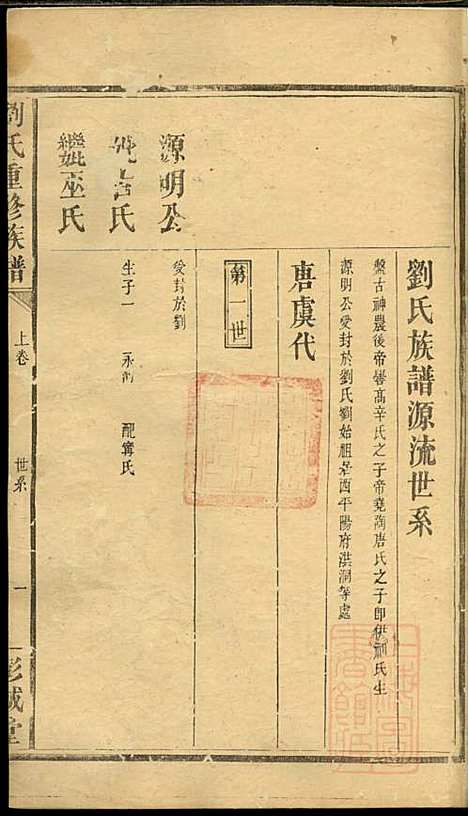 劉氏族譜源流世系
盤古神農後帝嚳高辛氏之子帝堯陶唐氏之子即伊祁氏生
源明公受封於劉氏劉始祖是西平陽府洪洞等處
唐虞代
第一世
源明公
受封於劉
妣宮氏
生子一 永河 配寗氏
繼妣巫氏
劉氏重修族譜
上卷
世系
一
彭城堂